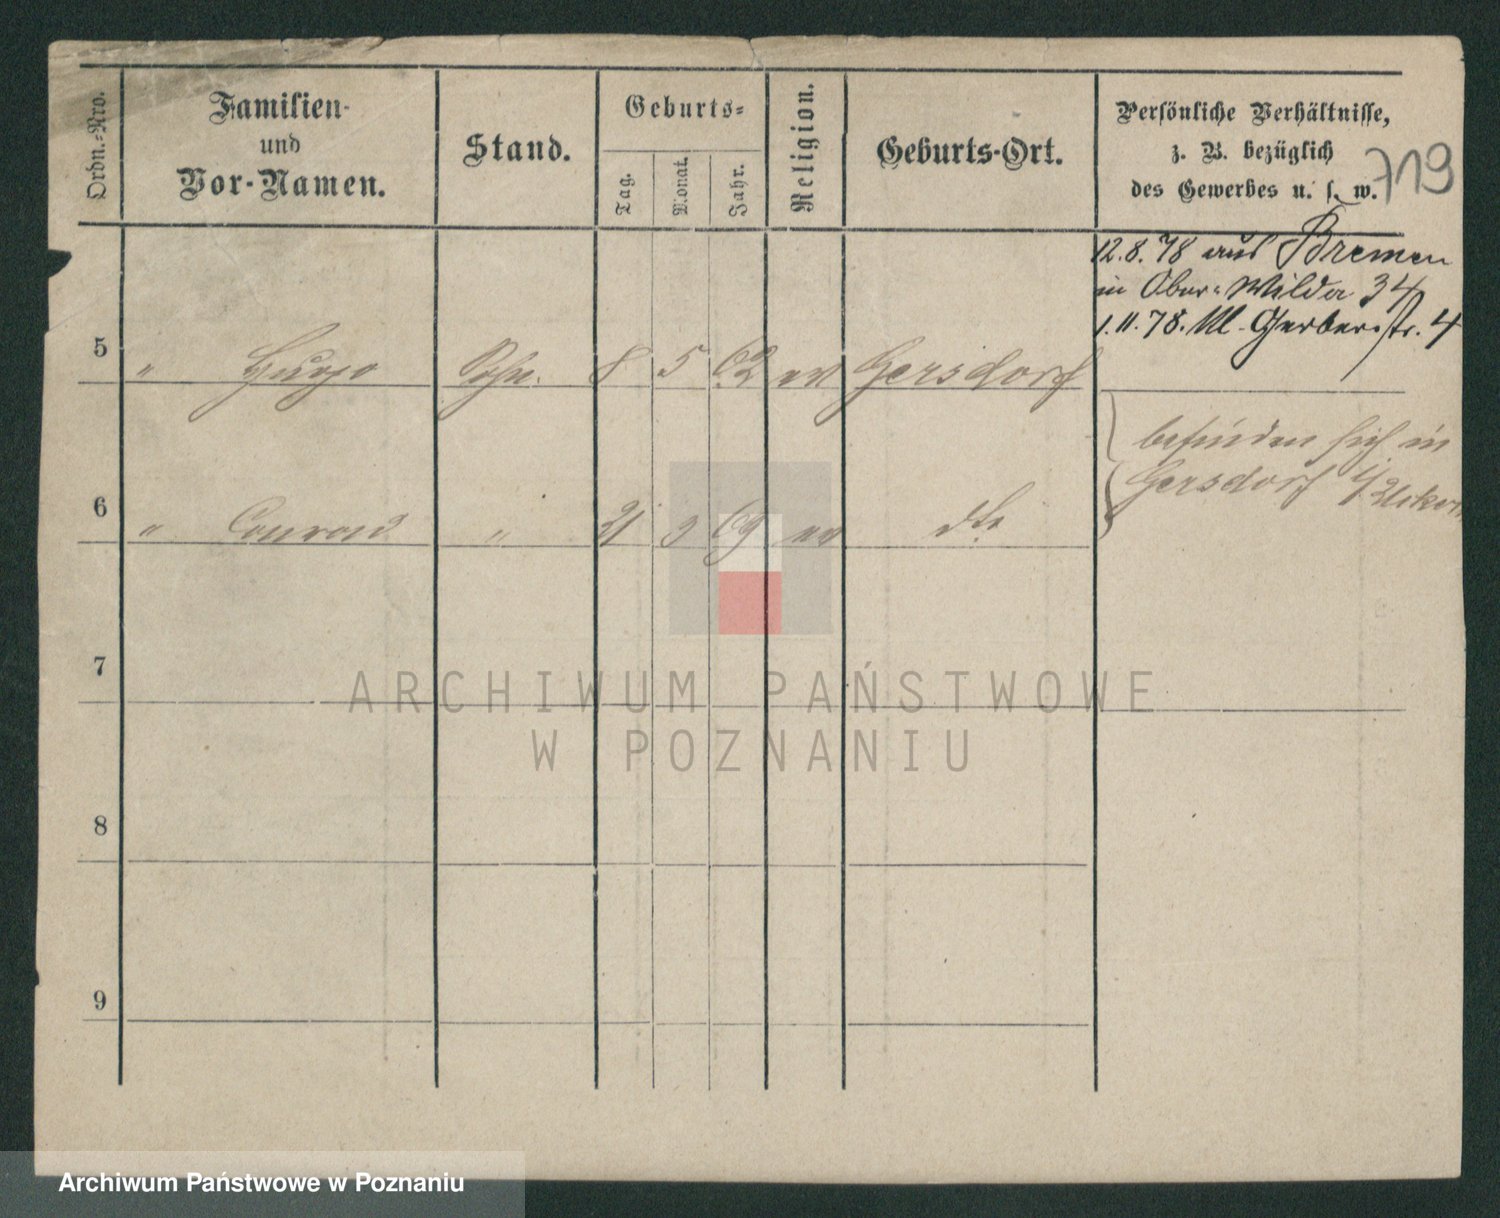 Ordn.-Nro.
Familien-
und
Vor-Namen.
Stand.
Geburts-
Tag.
Monat.
Jahr.
Religion.
Geburts-Ort.
Persönliche Verhältnisse,
z. B. bezüglich
des Gewerbes u. s. w.
719
12.8.78 aus Bremen
in Ober-Wilda 34
1.11.78. Kl. Gerberstr. 4
5 " Hugo Sohn. 8 5 62 ev Gersdorf
befinden sich in
Gersdorf
6 " Conrad " 21 3 69 ev dto
7
ARCHIWUM PAŃSTWOWE
W POZNANIU
8
9
Archiwum Państwowe w Poznaniu